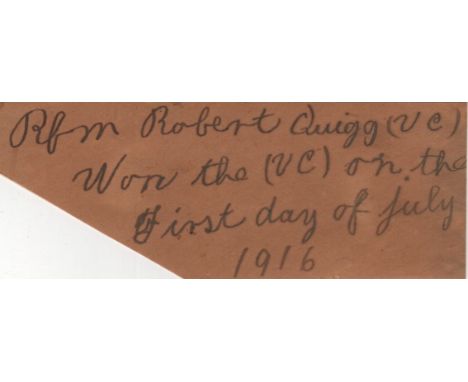 Rfm Robert Quigg (VC)
Won the (VC) on the
First day of July
1916